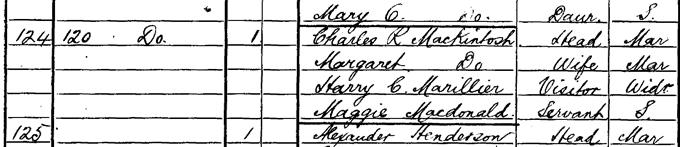 Mary C. Do. Daur. S.
124 120 Do. 1 Charles R Mackintosh Head Mar
Margaret Do Wife Mar
Harry C. Marillier Visitor Widr
Maggie Macdonald. Servant S.
125 1 Alexander Henderson Head Mar